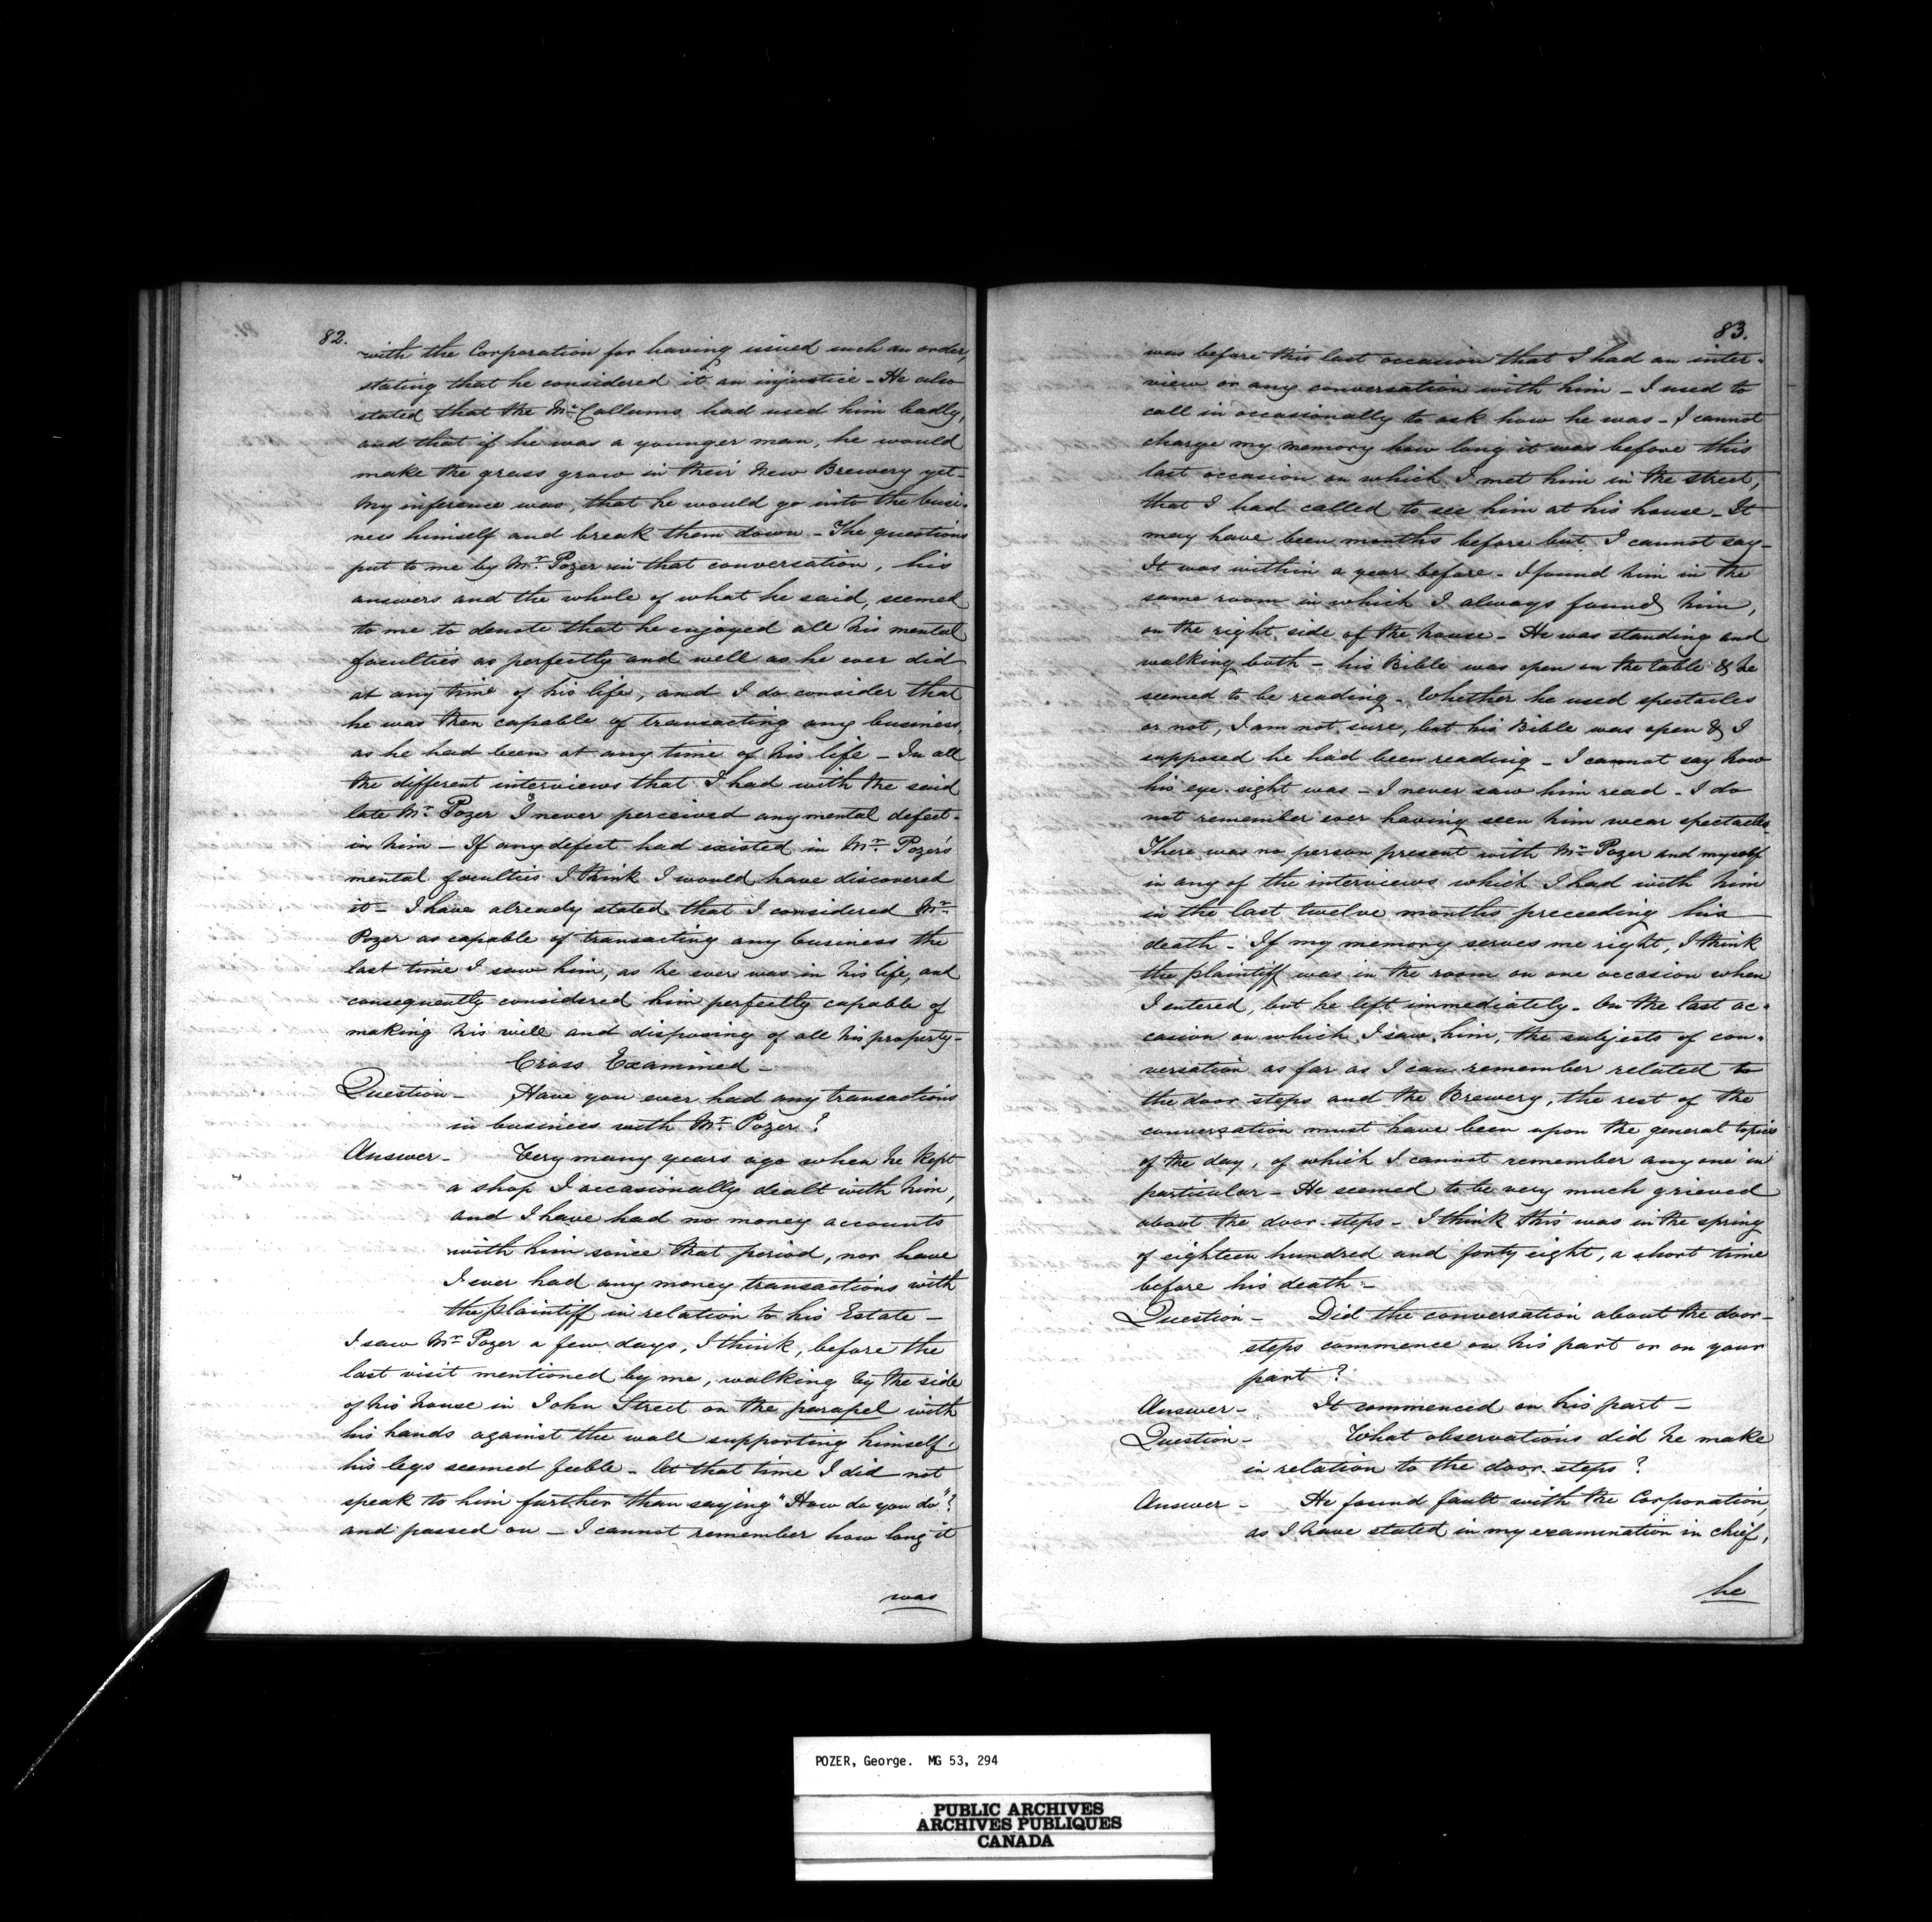 82.
with the Corporation for having issued such an order,
stating that he considered it an injustice - He also
stated that the Mc.Callums had used him badly,
and that if he was a younger man, he would
make the grass grow in their New Brewery yet -
My inference was, that he would go into the busi-
ness himself and break them down - The questions
put to me by Mr. Pozer in that conversation, his
answers and the whole of what he said, seemed
to me to denote that he enjoyed all his mental
faculties as perfectly and well as he ever did
at any time of his life, and I do consider that
he was then capable of transacting any business,
as he had been at any time of his life - In all
the different interviews that I had with the said
late Mr. Pozer I never perceived any mental defect -
in him - If any defect had existed in Mr. Pozer's
mental faculties I think I would have discovered
it - I have already stated that I considered Mr.
Pozer as capable of transacting any business the
last time I saw him, as he ever was in his life, and
consequently considered him perfectly capable of
making his will and disposing of all his property -
Cross Examined -
Question - Have you ever had any transactions
in business with Mr. Pozer?
Answer - Very many years ago when he kept
a shop I occasionally dealt with him,
and I have had no money accounts
with him since that period, nor have
I ever had any money transactions with
the plaintiff in relation to his Estate -
I saw Mr. Pozer a few days, I think, before the
last visit mentioned by me, walking by the side
of his house in John Street on the parapel with
his hands against the wall supporting himself;
his legs seemed feeble - At that time I did not
speak to him further than saying "How do you do"?
and passed on - I cannot remember how long it
was
83.
was before this last occasion that I had an inter-
view or any conversation with him - I used to
call in occasionally to ask how he was - I cannot
charge my memory how long it was before this
last occasion on which I met him in the street,
that I had called to see him at his house - It
may have been months before but I cannot say -
It was within a year before - I found him in the
same room in which I always found him,
on the right side of the house - He was standing and
walking both - his Bible was open on the table & he
seemed to be reading - Whether he used spectacles
or not, I am not sure, but his Bible was open & I
supposed he had been reading - I cannot say how
his eye-sight was - I never saw him read - I do
not remember ever having seen him wear spectacles
There was no person present with Mr. Pozer and myself
in any of the interviews which I had with him
in the last twelve months preceeding his
death - If my memory serves me right, I think
the plaintiff was in the room on one occasion when
I entered, but he left immediately - On the last oc-
casion on which I saw him, the subjects of con-
versation as far as I can remember related to
the door steps and the Brewery, the rest of the
conversation must have been upon the general topics
of the day, of which I cannot remember any one in
particular - He seemed to be very much grieved
about the door-steps - I think this was in the spring
of eighteen hundred and forty eight, a short time
before his death -
Question - Did the conversation about the door-
steps commence on his part or on your
part?
Answer - It commenced on his part -
Question - What observations did he make
in relation to the door-steps?
Answer - He found fault with the Corporation,
as I have stated in my examination in chief,
he
POZER, George. MG 53, 294
PUBLIC ARCHIVES
ARCHIVES PUBLIQUES
CANADA